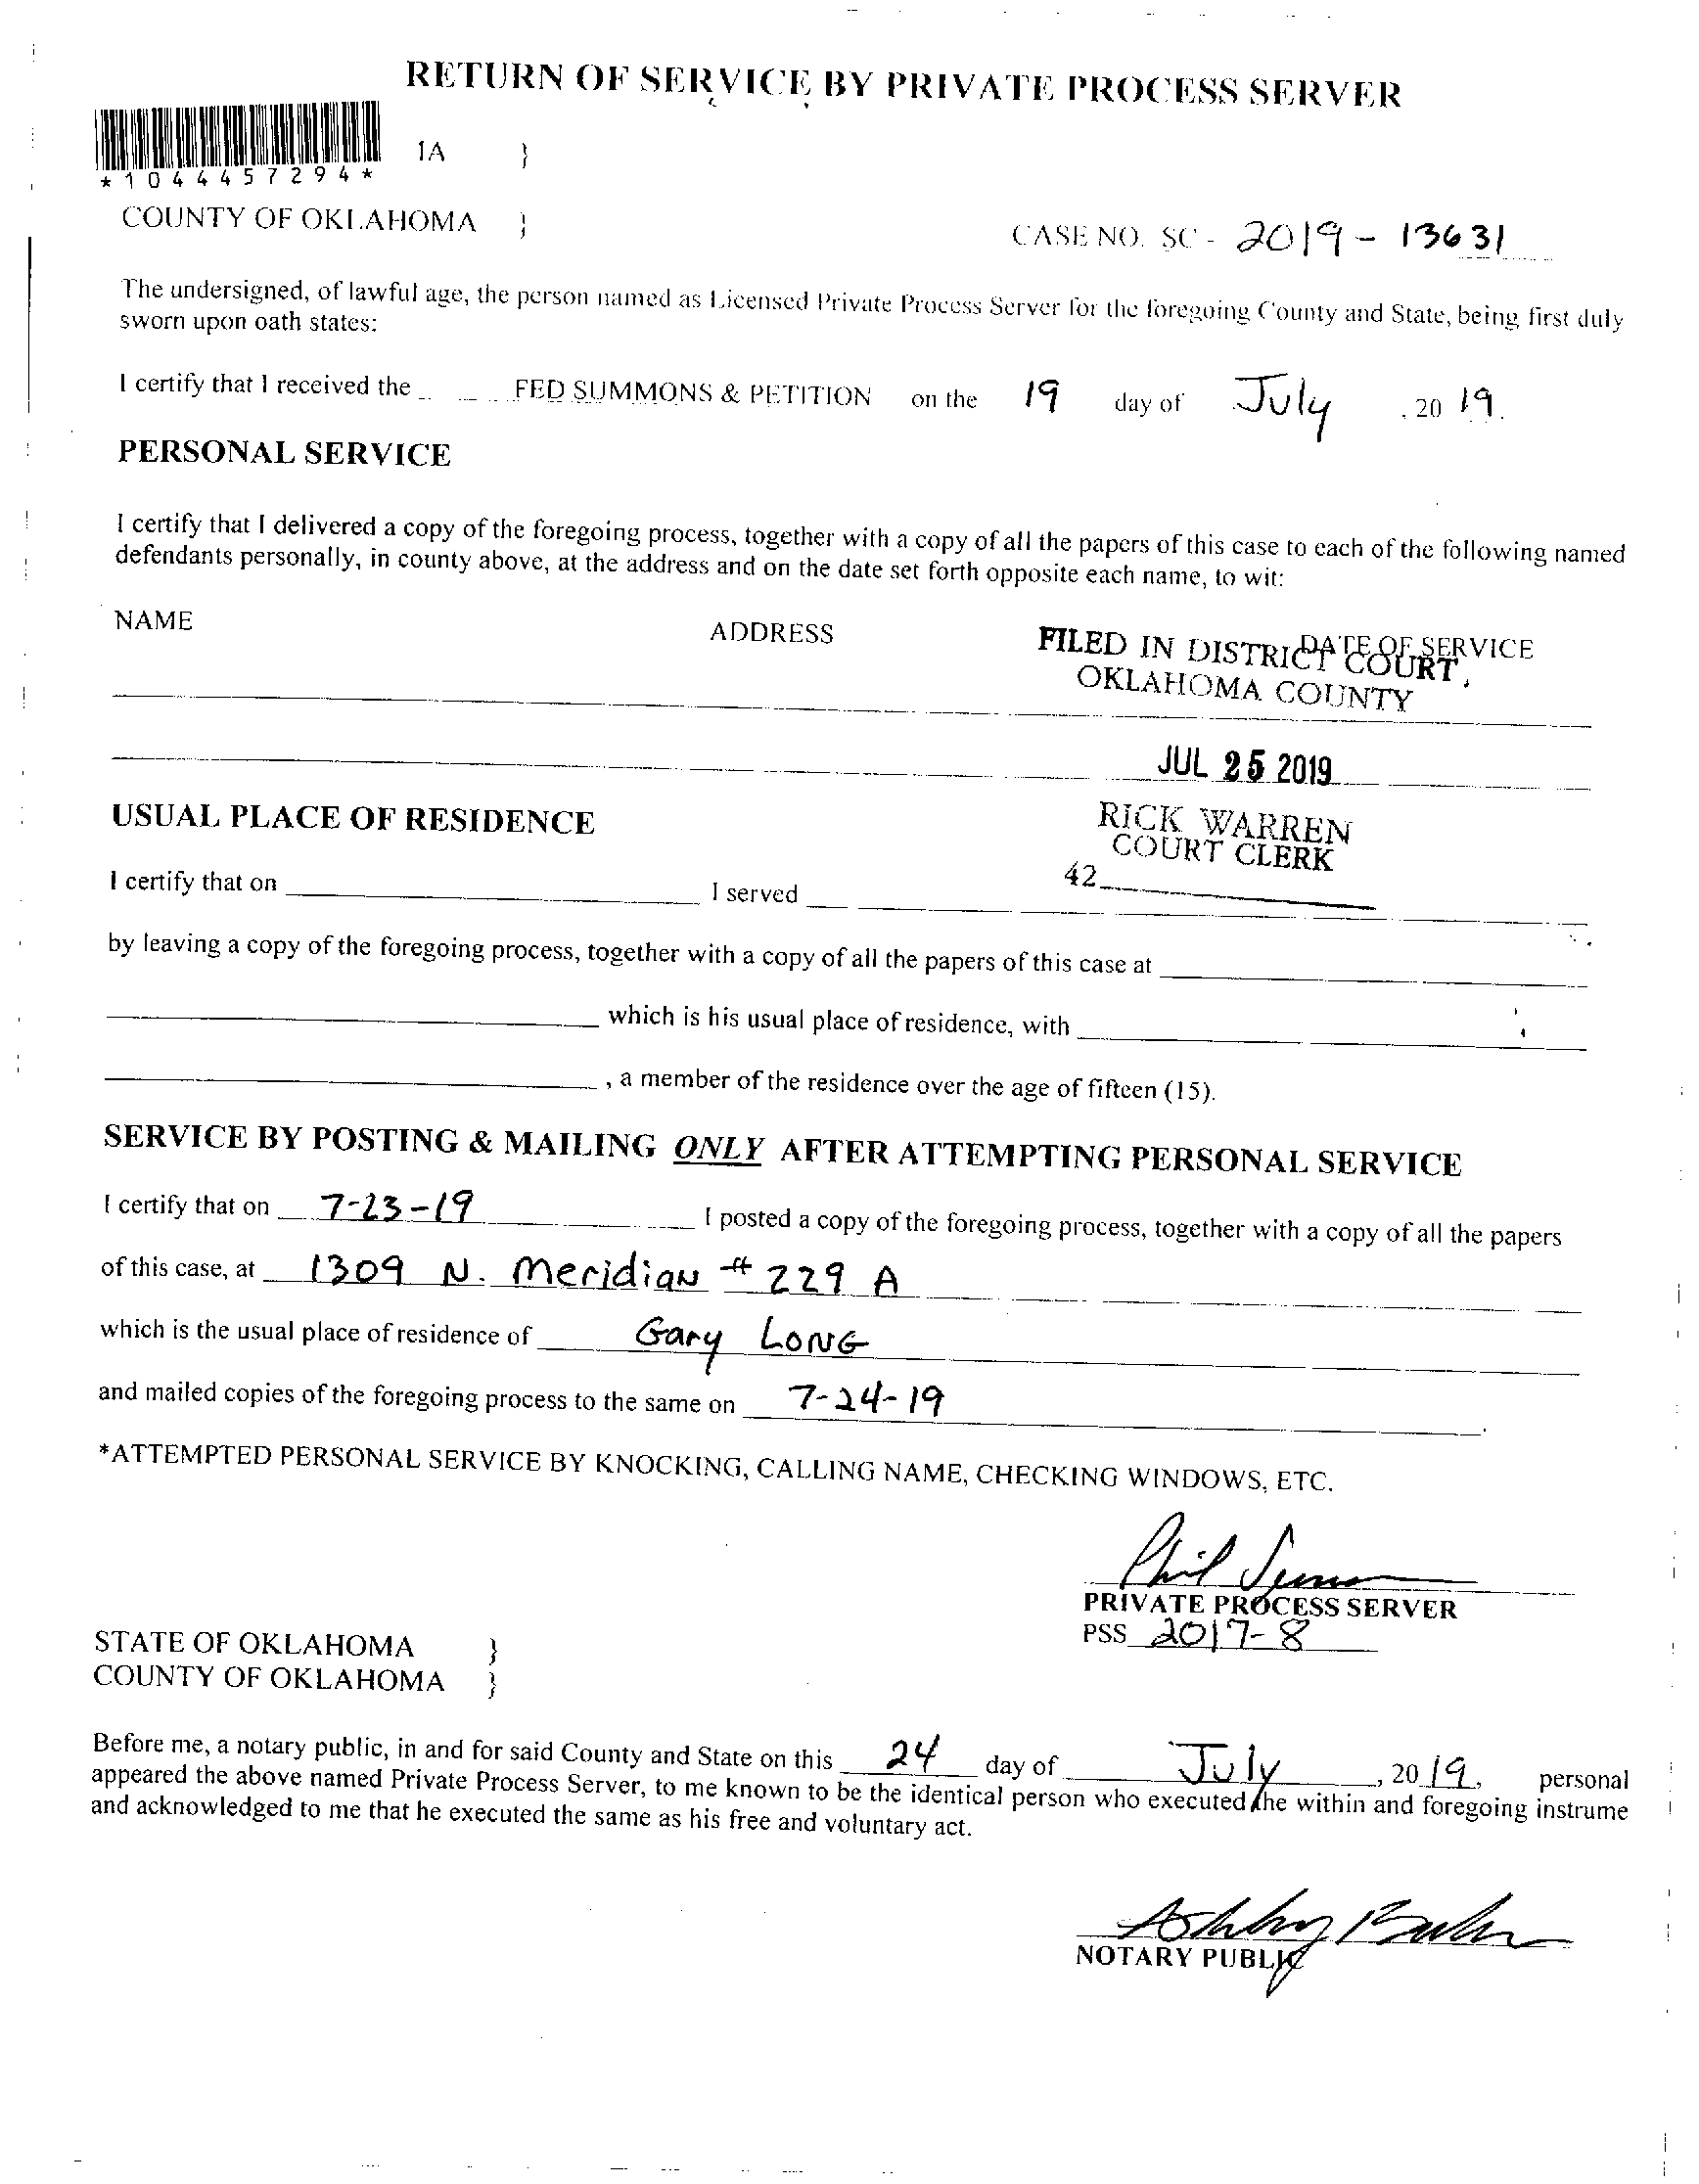 RETURN OF SERVICE BY PRIVATE PROCESS SERVER
1A }
*1044457294*
COUNTY OF OKLAHOMA }
CASE NO. SC - 2019 - 13631
The undersigned, of lawful age, the person named as Licensed Private Process Server for the foregoing County and State, being first duly
sworn upon oath states:
I certify that I received the FED SUMMONS & PETITION on the 19 day of July , 20 19.
PERSONAL SERVICE
I certify that I delivered a copy of the foregoing process, together with a copy of all the papers of this case to each of the following named
defendants personally, in county above, at the address and on the date set forth opposite each name, to wit:
NAME ADDRESS DATE OF SERVICE
FILED IN DISTRICT COURT
OKLAHOMA COUNTY
JUL 25 2019
RICK WARREN
COURT CLERK
42
USUAL PLACE OF RESIDENCE
I certify that on I served
by leaving a copy of the foregoing process, together with a copy of all the papers of this case at
which is his usual place of residence, with
, a member of the residence over the age of fifteen (15).
SERVICE BY POSTING & MAILING ONLY AFTER ATTEMPTING PERSONAL SERVICE
I certify that on 7-23-19 I posted a copy of the foregoing process, together with a copy of all the papers
of this case, at 1309 N. Meridian # 229 A
which is the usual place of residence of Gary Long
and mailed copies of the foregoing process to the same on 7-24-19.
*ATTEMPTED PERSONAL SERVICE BY KNOCKING, CALLING NAME, CHECKING WINDOWS, ETC.
Phil
PRIVATE PROCESS SERVER
PSS 2017-8
STATE OF OKLAHOMA }
COUNTY OF OKLAHOMA }
Before me, a notary public, in and for said County and State on this 24 day of July, 20 19, personal
appeared the above named Private Process Server, to me known to be the identical person who executed the within and foregoing instrume
and acknowledged to me that he executed the same as his free and voluntary act.
NOTARY PUBLIC